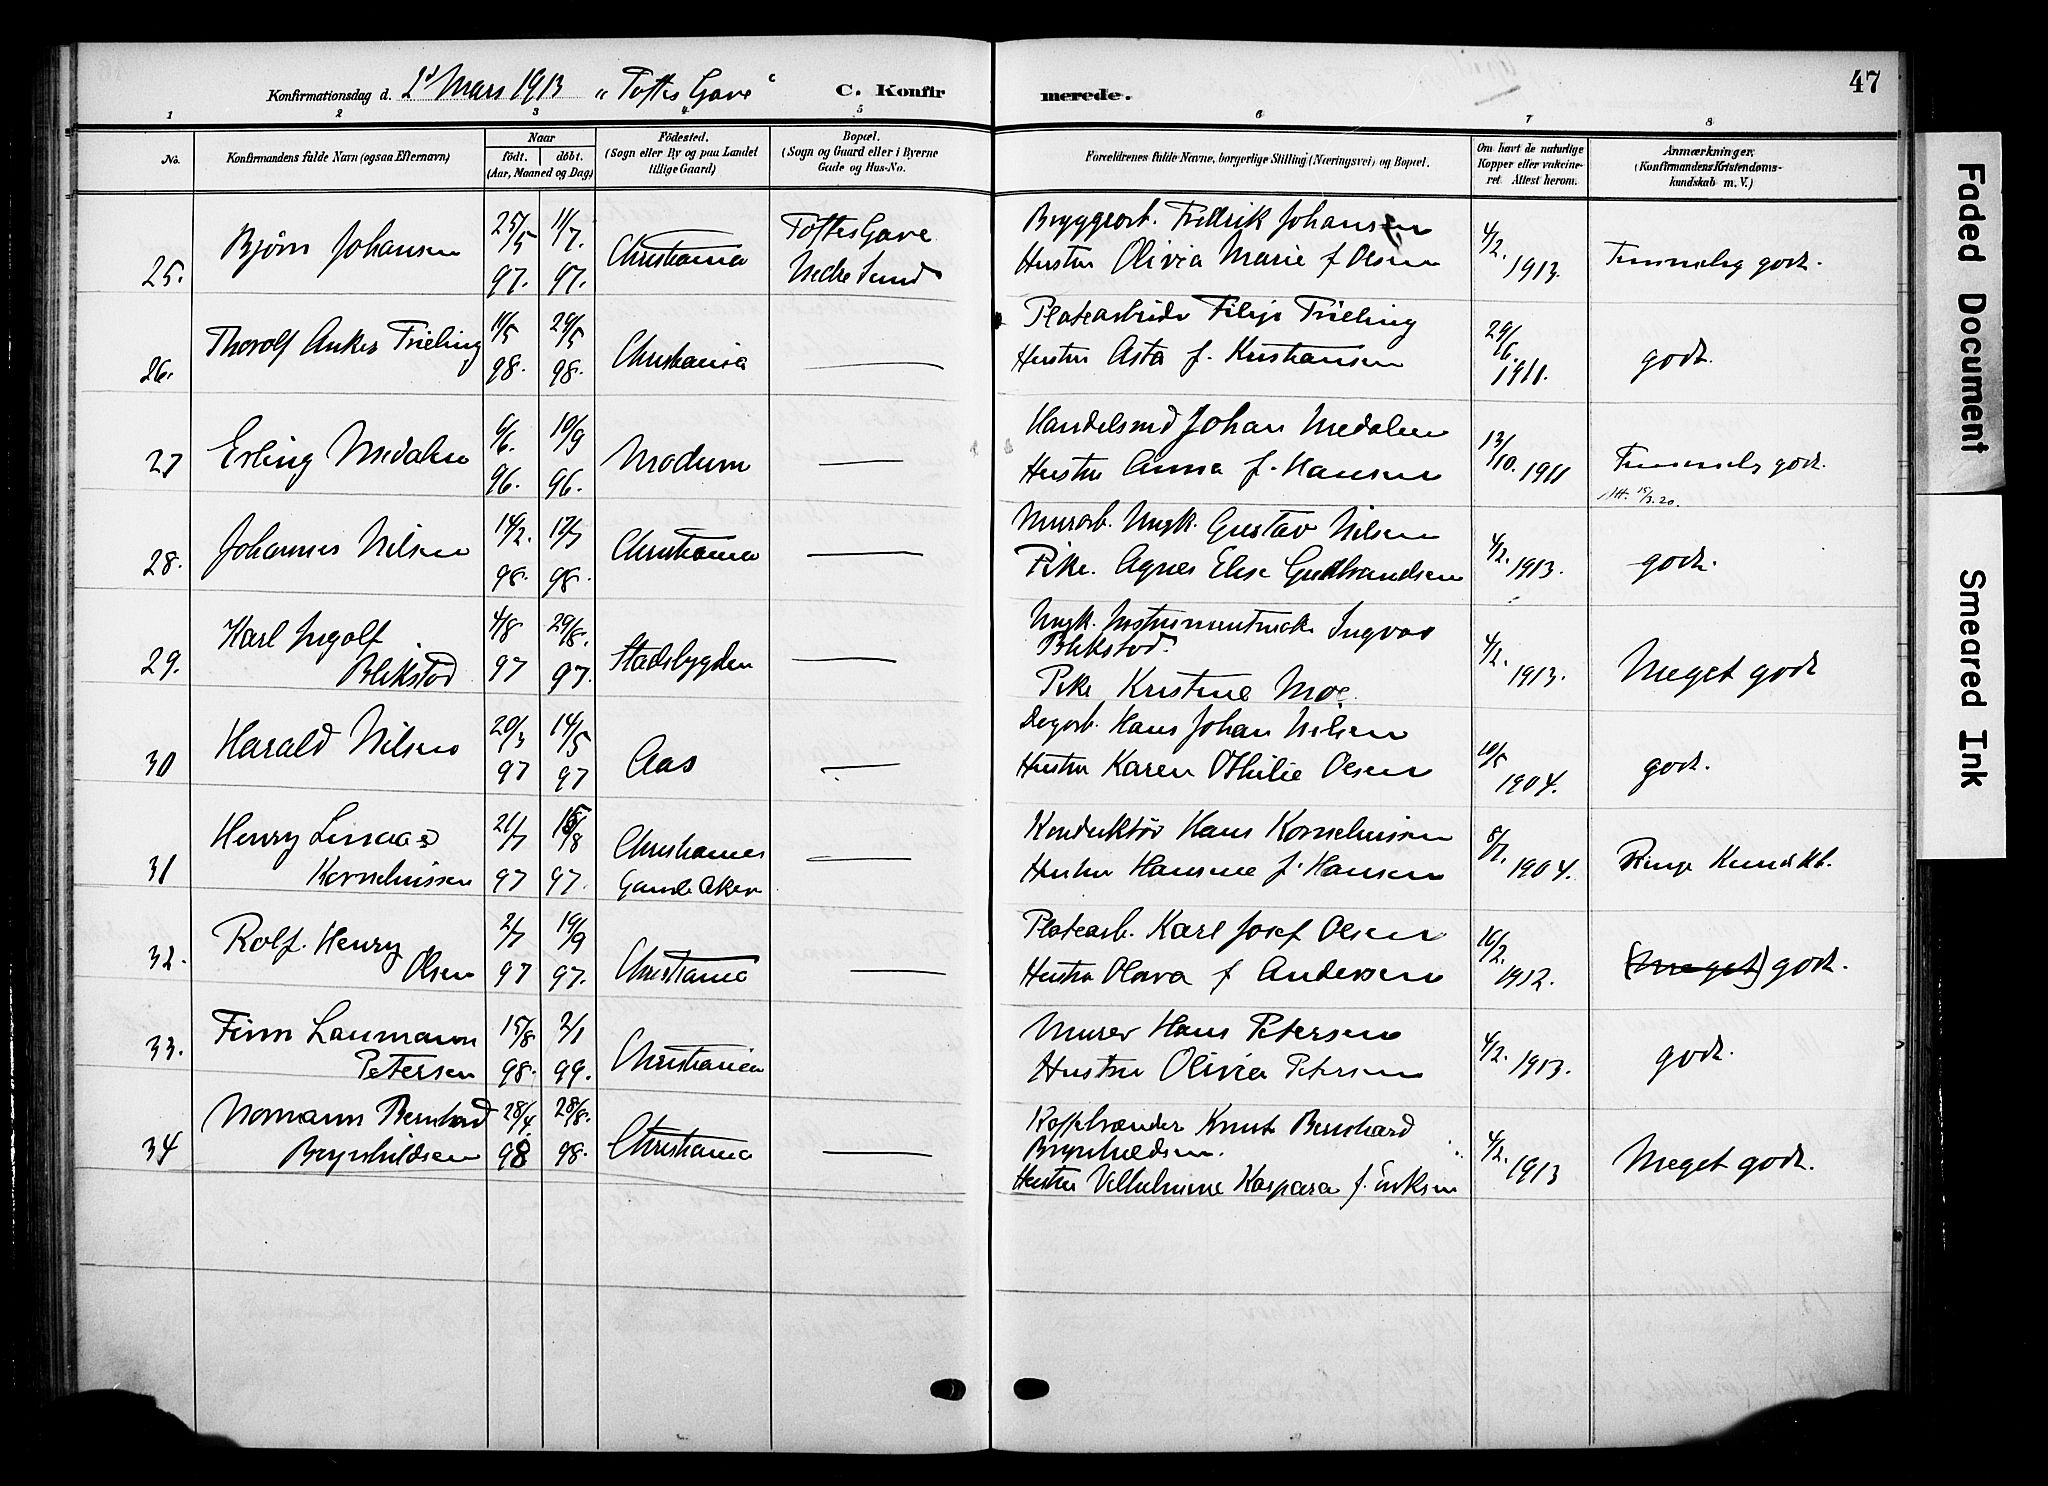 Konfirmationsdag d. 2d Mars 1913 "Toftes Gave" C. Konfirmerede. 47
1 2 3 4 5 6 7 8
No. Konfirmandens fulde Navn (ogsaa Efternavn) Naar født. døbt. (Aar, Maaned og Dag) Födested. (Sogn eller By og paa Landet tillige Gaard) Bopæl. (Sogn og Gaard eller i Byerne Gade og Hus-No. Forældrenes fulde Navne, borgerlige Stilling (Næringsvei) og Bopæl. Om havt de naturlige Kopper eller vakcineret Attest herom. Anmærkninger, (Konfirmandens Kristendomskundskab m. V.)
25. Bjørn Johansen 25/5 97. 11/7. 97. Christiania Toftes Gave Nedre Sund Bryggearb. Fredrik Johansen Hustru Olivia Marie f Olsen 4/2. 1913. Temmelig godt.
26. Thorolf Anker Trieling 11/5 98. 29/5 98. Christiania — Platearbeider Filip Trieling Hustru Asta f. Kristiansen 29/6. 1911. godt.
27 Erling Medalen 6/6. 96. 10/9 96. Modum — Handelsmd Johan Medalen Hustru Anna f. Hansen 13/10. 1911 Temmelig godt.
Att. 15/3.20.
28. Johannes Nilsen 14/2. 98. 17/7 98. Christiania — Murarb. Ungk. Gustav Nilsen Pike. Agnes Elise Gudbrandsen 4/2. 1913. godt.
29. Karl Ingolf Blikstad 4/8 97 29/8. 97. Stadsbygden — Ungk. Instrumentmaker Ingvar Blikstad. Pike Kristine Moe. 4/2. 1913. Meget godt
30 Harald Nilsen 20/3 97 14/5 97 Aas — Dagarb. Hans Johan Nilsen Hustru Karen Othilie Olsen 10/5 1904. godt.
31 Henry Linaas Korneliussen 21/7 97 15/8 97. Christiania Gamle Aker — Konduktør Hans Korneliussen Hustru Hansine f. Hansen 8/7. 1904. Ringe Kundskb.
32. Rolf Henry Olsen 2/7 97 19/9 97. Christiania — Platearb. Karl Josef Olsen Hustru Olava f Andersen 16/2. 1912. (meget) godt.
33. Finn Laumann Petersen 15/8 98. 2/1 99. Christiania — Murer Hans Petersen Hustru Olivia Petersen 4/2. 1913. godt.
34 Normann Bernhard Brynhildsen 28/4. 98 28/8. 98. Christiania — Knut Bernhard Brynhildsen. Hustru Vilhelmine Kaspara f. Eriksen 4/2. 1913 Meget godt.
Faded Document
Smeared Ink